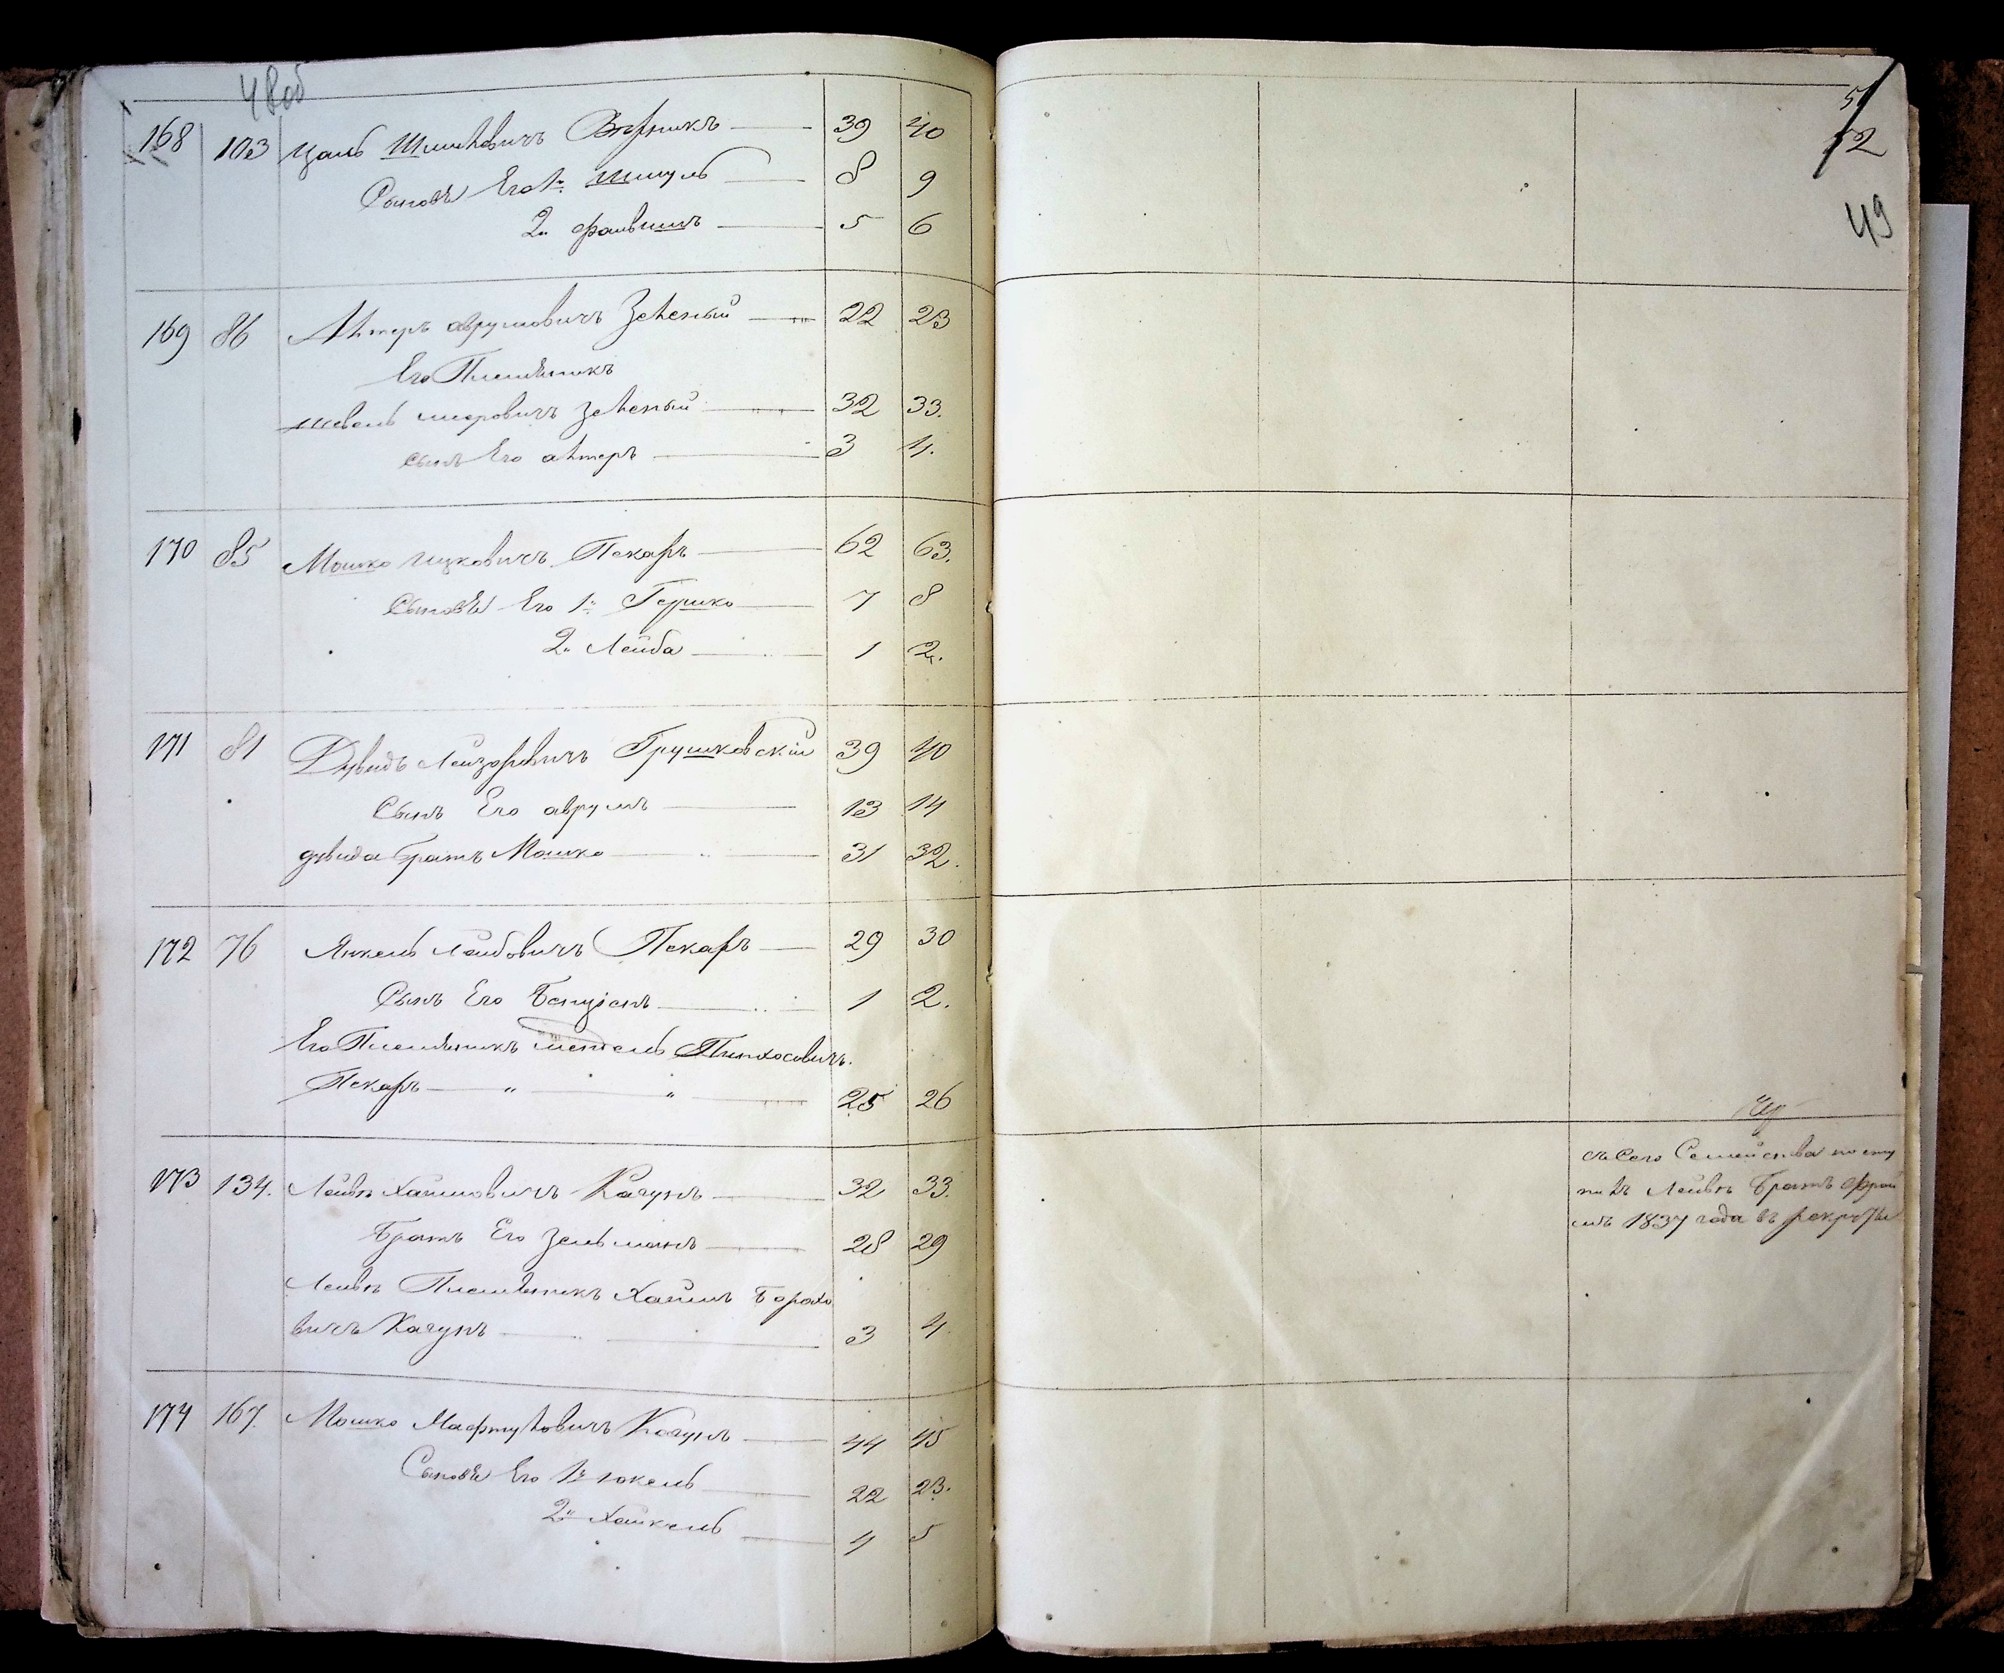 48об
168 103 Шмулевичъ 39 40
Сыновья Его 1й Шмуль 8 9
2й 5 6
169 86 Аврумовичъ Зеленый 22 23
Его Племянникъ
Зеленый 32 33.
сынъ Его 3 4.
170 85 Мошко Ицковичъ Пекаръ 62 63.
Сыновья Его 1й Гершко 7 8
2й Лейба 1 2.
171 81 Дувидъ Лейзоровичъ Грушковскій 39 40
Сынъ Его аврумъ 13 14
дувида братъ Мошко 31 32.
172 76 Янкель Лейбовичъ Пекаръ 29 30
Сынъ Его Бенціонъ 1 2.
Его Племянникъ Мендель Пинхосовичъ
Пекаръ 25 26
173 134. Лейвъ Хаимовичъ Кагунъ 32 33.
Братъ Его Зельманъ 28 29
Лейвы Племянникъ Хаимъ Борохо
вичъ Кагунъ 3 4
174 167. Мошко Кагунъ 44 45
Сыновья Его 1й 22 23.
2й Хаикель 4 5
51
52
49
съ Сего Семейства посту
пилъ Лейвы Братъ Фрои
мъ 1837 года въ рекруты